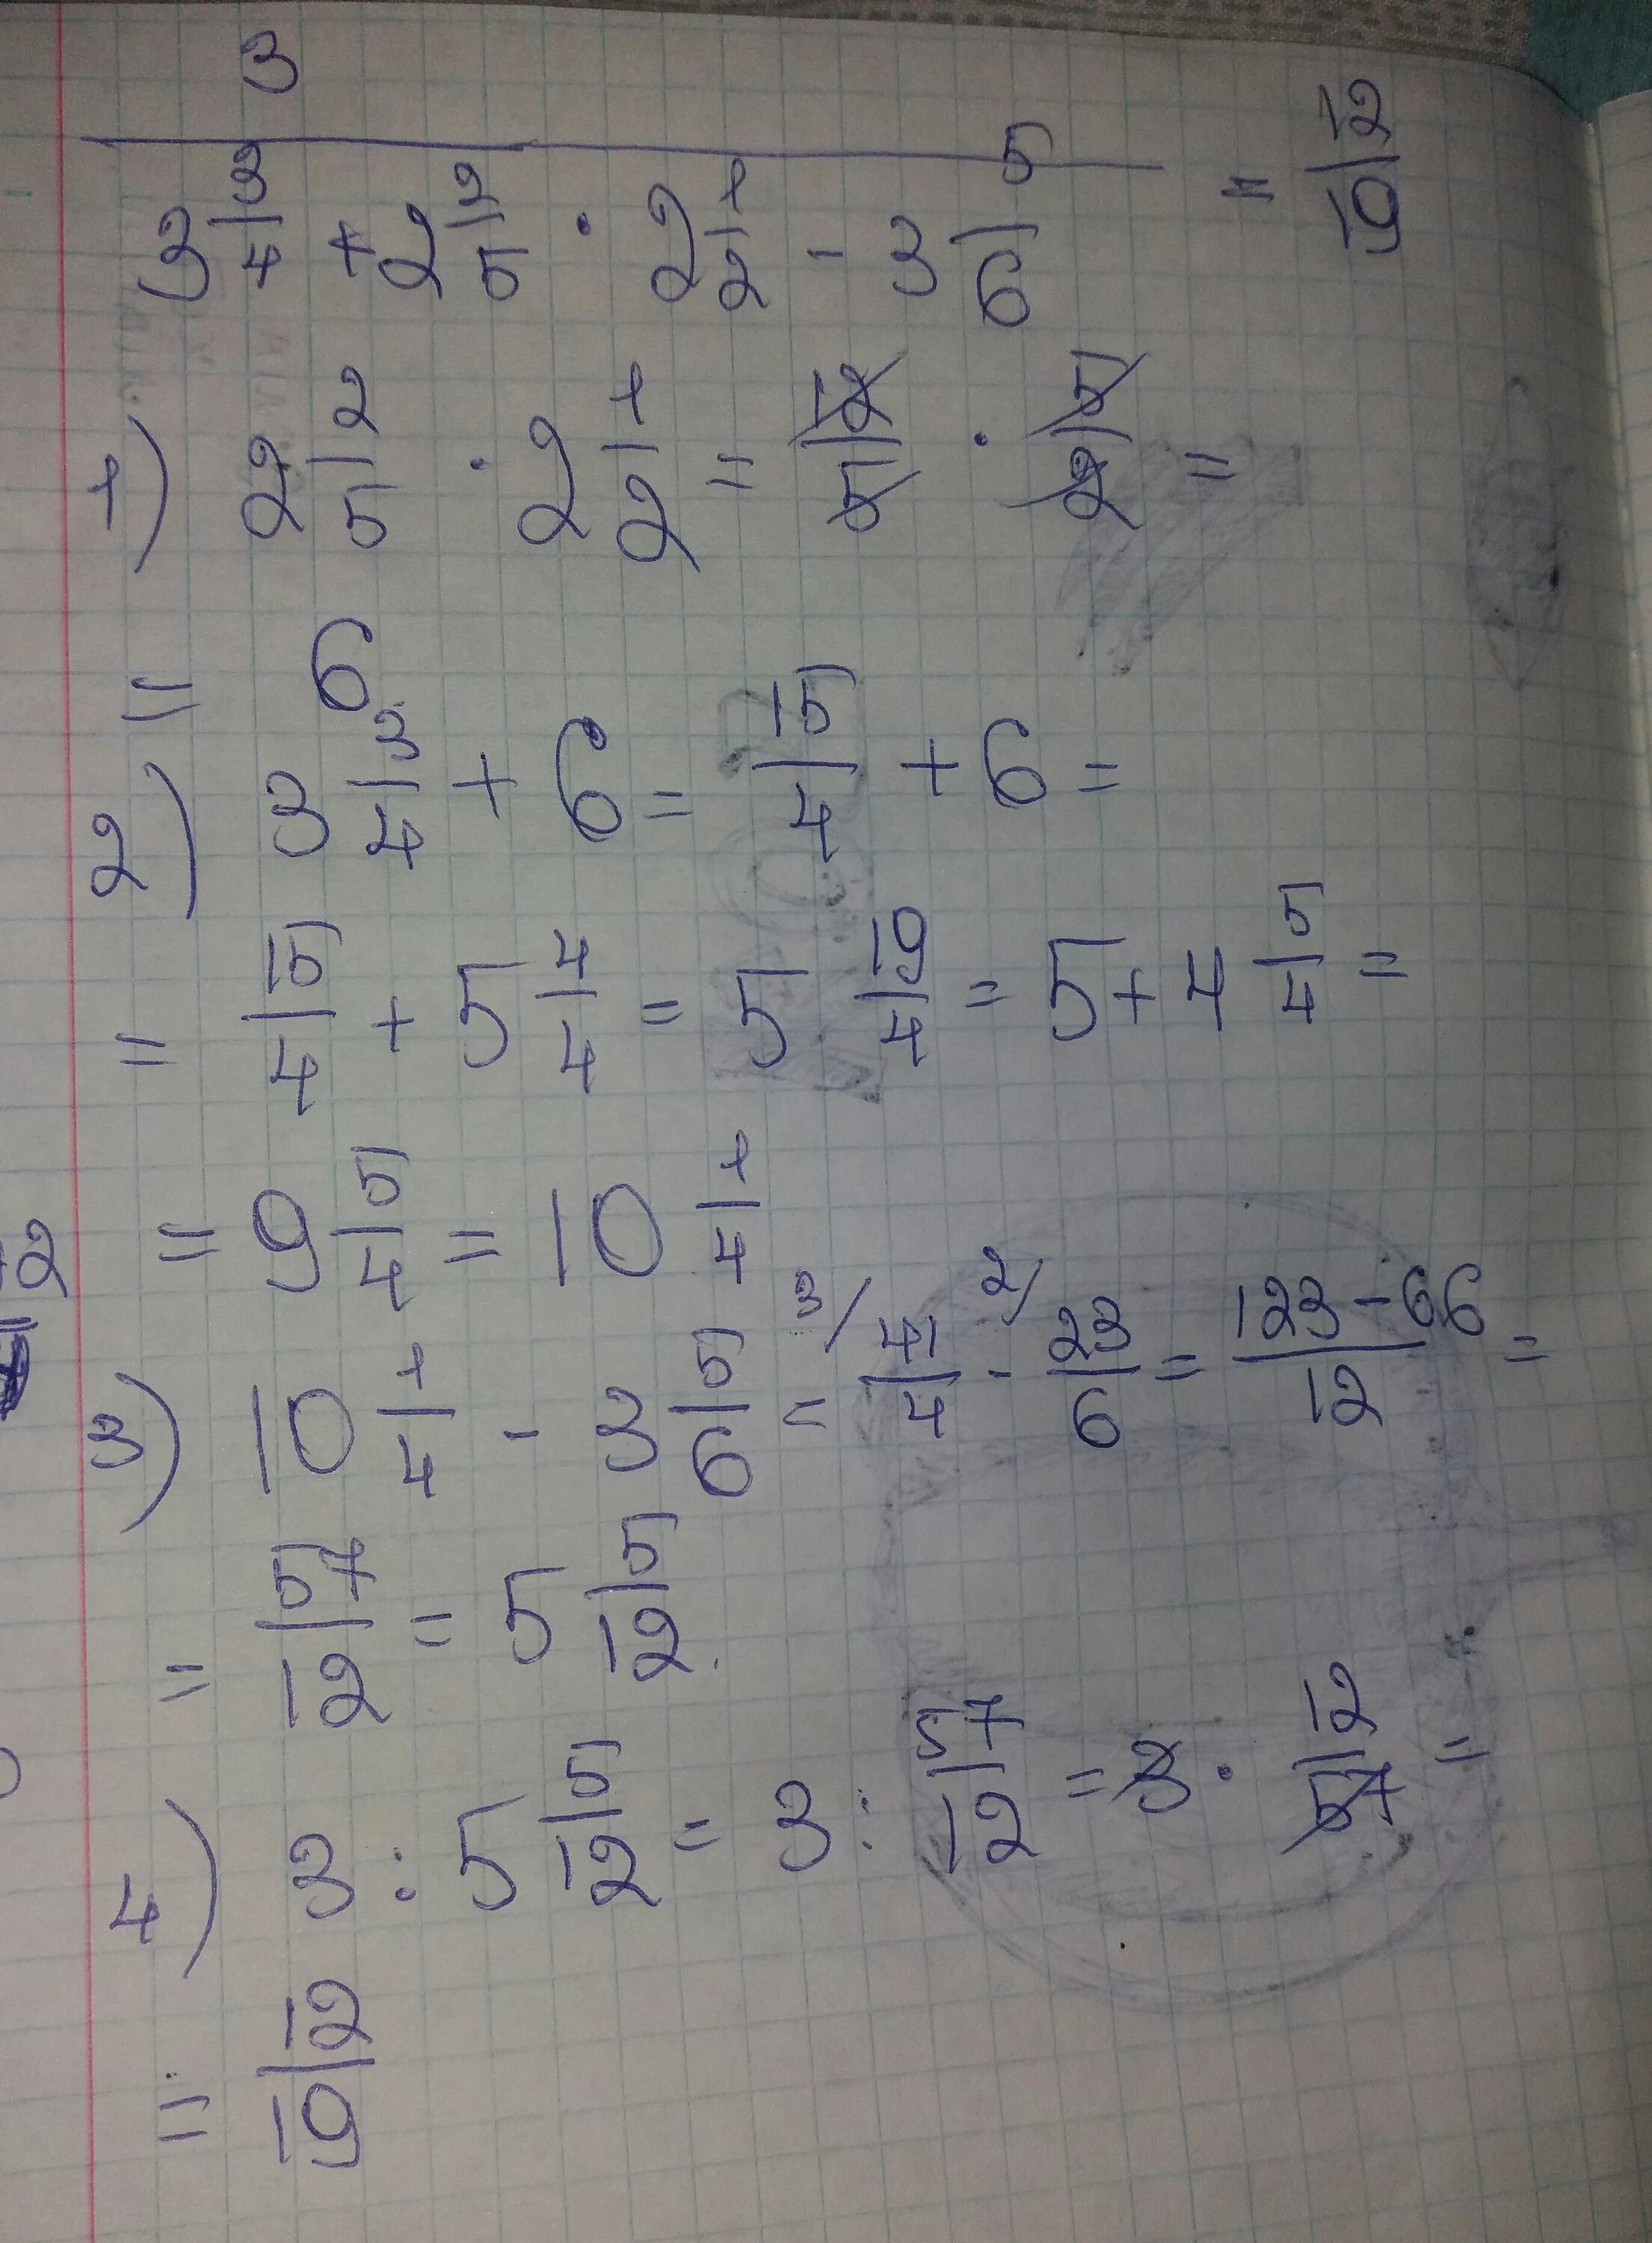 3
3 3/4 + 2 2/5 · 2 1/2 - 3 5/6 = 12/19
1) 2 2/5 · 2 1/2 = 12/5 · 5/2 =
= 6
2) 3 3/4 + 6 = 15/4 + 6 =
= 15/4 + 5 4/4 = 5 19/4 = 5 + 4 5/4 =
2
= 9 5/4 = 10 1/4
3) 10 1/4 - 3 5/6 = 3/ 41/4 - 2/ 23/6 = (123 - 66)/12 =
= 57/12 = 5 5/12
4) 3 : 5 5/12 = 3 : 57/12 = 3 · 12/57 =
= 12/19